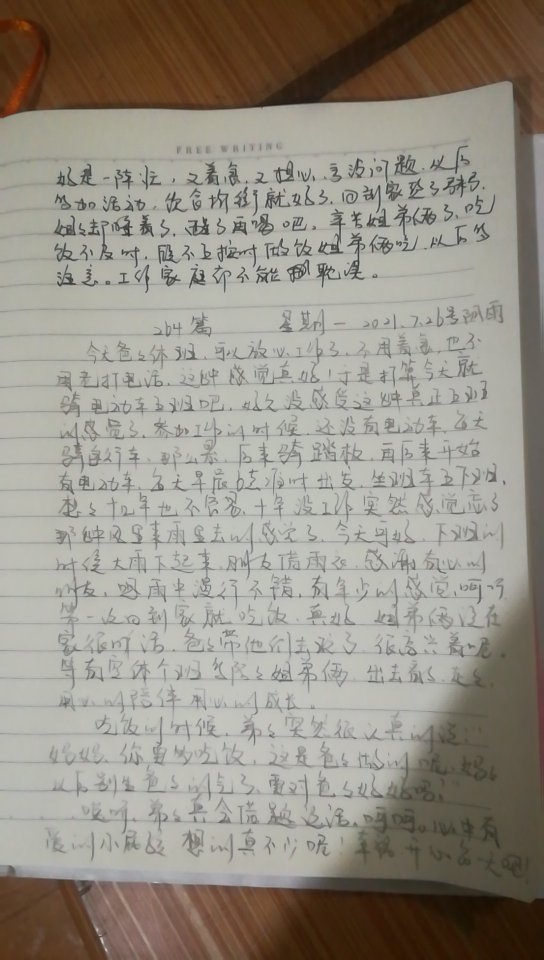 FREE WRITING
好是一阵忙，又着急，又担心，言没问题，以后
参加活动，饮食均衡就好了，回到家累了
姐弟都睡着了，醒了再喝吧。辛苦姐弟俩了，吃
饭不及时，顾不上按时做饭姐弟俩吃，以后多
注意。工作家庭都不能耽误。
264篇 星期一 2021.7.26号阴雨
今天爸爸休班，可以放心工作了，不用着急，也不
用老打电话，这种感觉真好！于是打算今天就
骑电动车上班吧，好久没感受这种真正上班
的感觉了，参加工作的时候还没有电动车，每天
骑自行车，那么累，后来骑踏板，再后来开始
有电动车，每天早晨6点准时出发，坐班车上下班，
想想十几年也不容易，十年没工作突然感觉忘了
那种风里来雨里去的感觉了，今天可好，下班的
时候大雨下起来，朋友借雨衣，感谢有心的
朋友，嗯雨中漫行不错，有年少的感觉，呵呵
第一次回到家就吃饭，真好 姐弟俩没在
家很听话，爸爸带他们去玩了，很高兴着呢。
等有空休个班多陪陪姐弟俩，出去看看，走走，
用心的陪伴用心的成长。
吃饭的时候，弟弟突然很认真的说：“
妈妈，你要多吃饭，这是爸爸做的呢，妈妈
以后别生爸爸的气了，要对爸爸好好吗？”
哎呀，弟弟真会借题说话，呵呵。心中有
爱的小屁孩 想的真不少呢！幸福开心每一天吧！